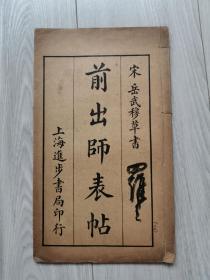 宋岳武穆草書
前出師表帖
上海進步書局印行